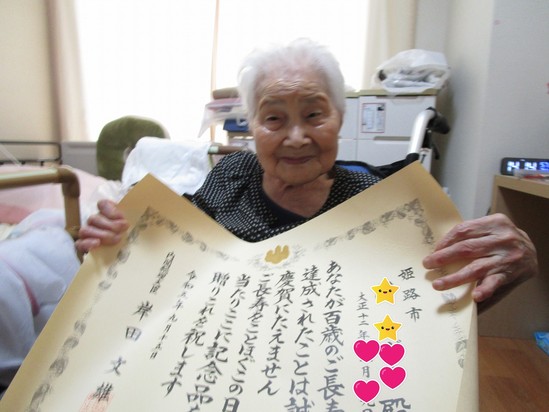 姫路市
殿
大正十二年 月
あなたが百歳のご長寿
達成されたことは誠
慶賀にたえません
ご長寿をことほぐこの日
当たりここに記念品
贈りこれを祝します
令和五年九月十五日
内閣総理大臣 岸田文雄